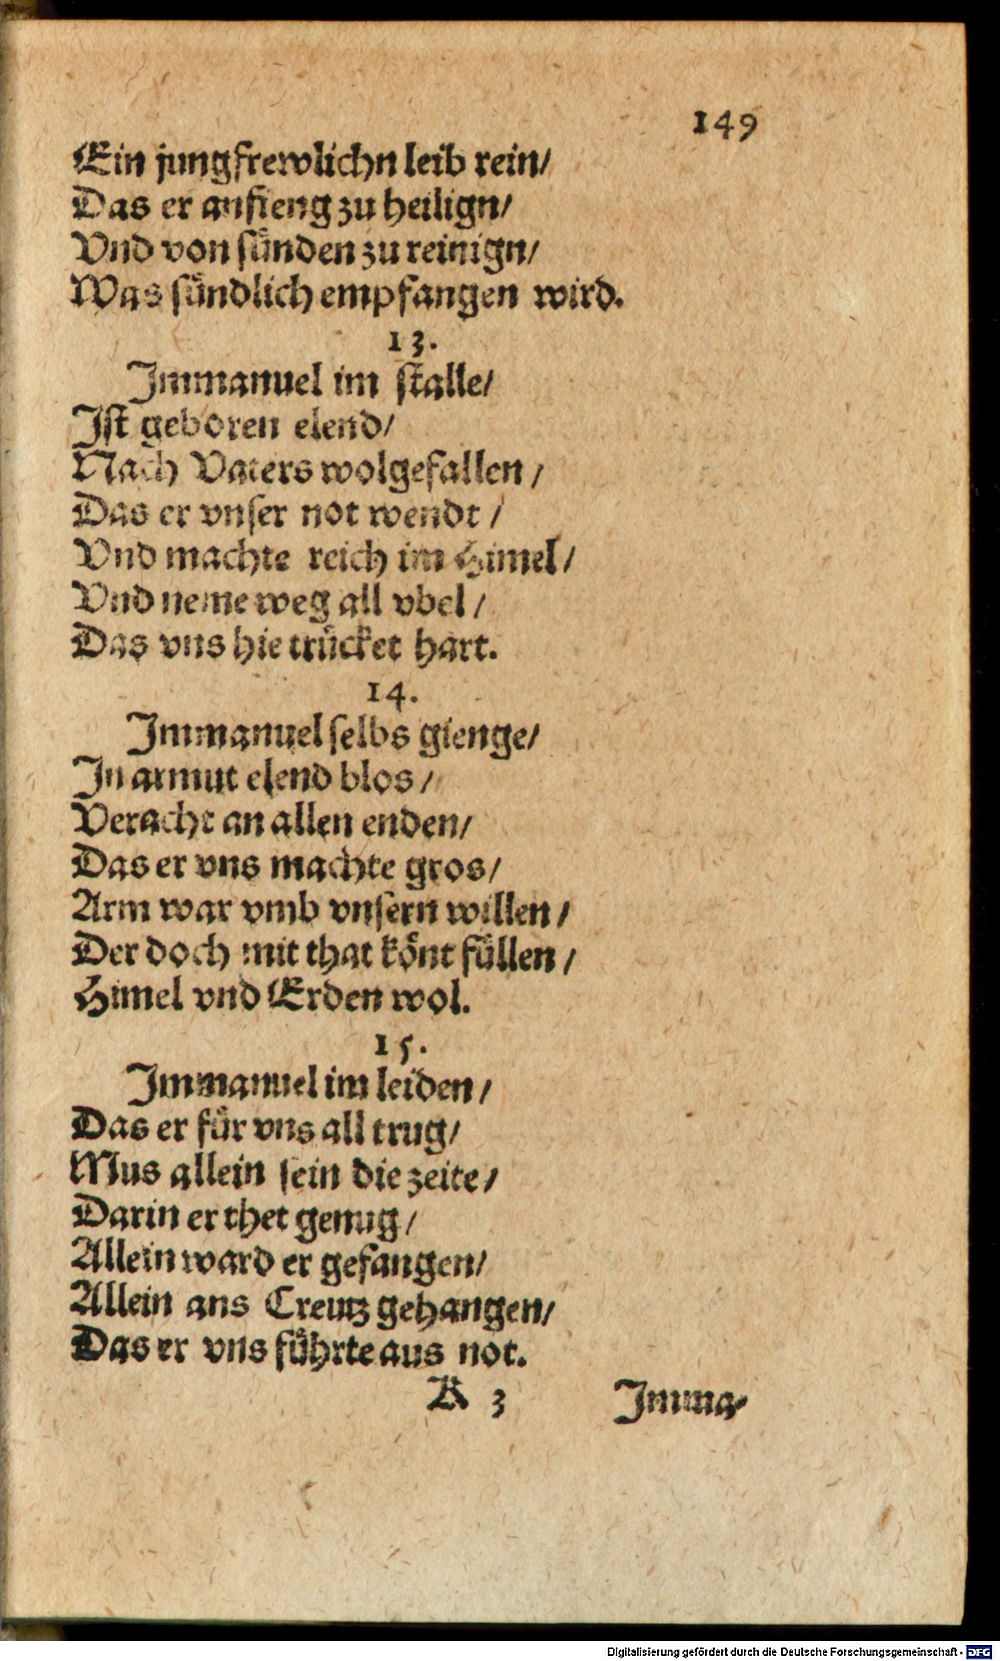 149
Ein jungfrewlichn leib rein/
Das er anfieng zu heilign/
Vnd von sünden zu reinign/
Was sündlich empfangen wird.
13.
Immanuel im stalle/
Ist geboren elend/
Nach Vaters wolgefallen/
Das er vnser not wendt/
Vnd machte reich im Himel/
Vnd neme weg all vbel/
Das vns hie trücket hart.
14.
Immanuel selbs gienge/
In armut elend blos/
Veracht an allen enden/
Das er vns machte gros/
Arm war vmb vnsern willen/
Der doch mit that könt füllen/
Himel vnd Erden wol.
15.
Immanuel im leiden/
Das er für vns all trug/
Mus allein sein die zeite/
Darin er thet genug/
Allein ward er gefangen/
Allein ans Creutz gehangen/
Das er vns führte aus not.
K 3 Imma-
Digitalisierung gefördert durch die Deutsche Forschungsgemeinschaft - DFG